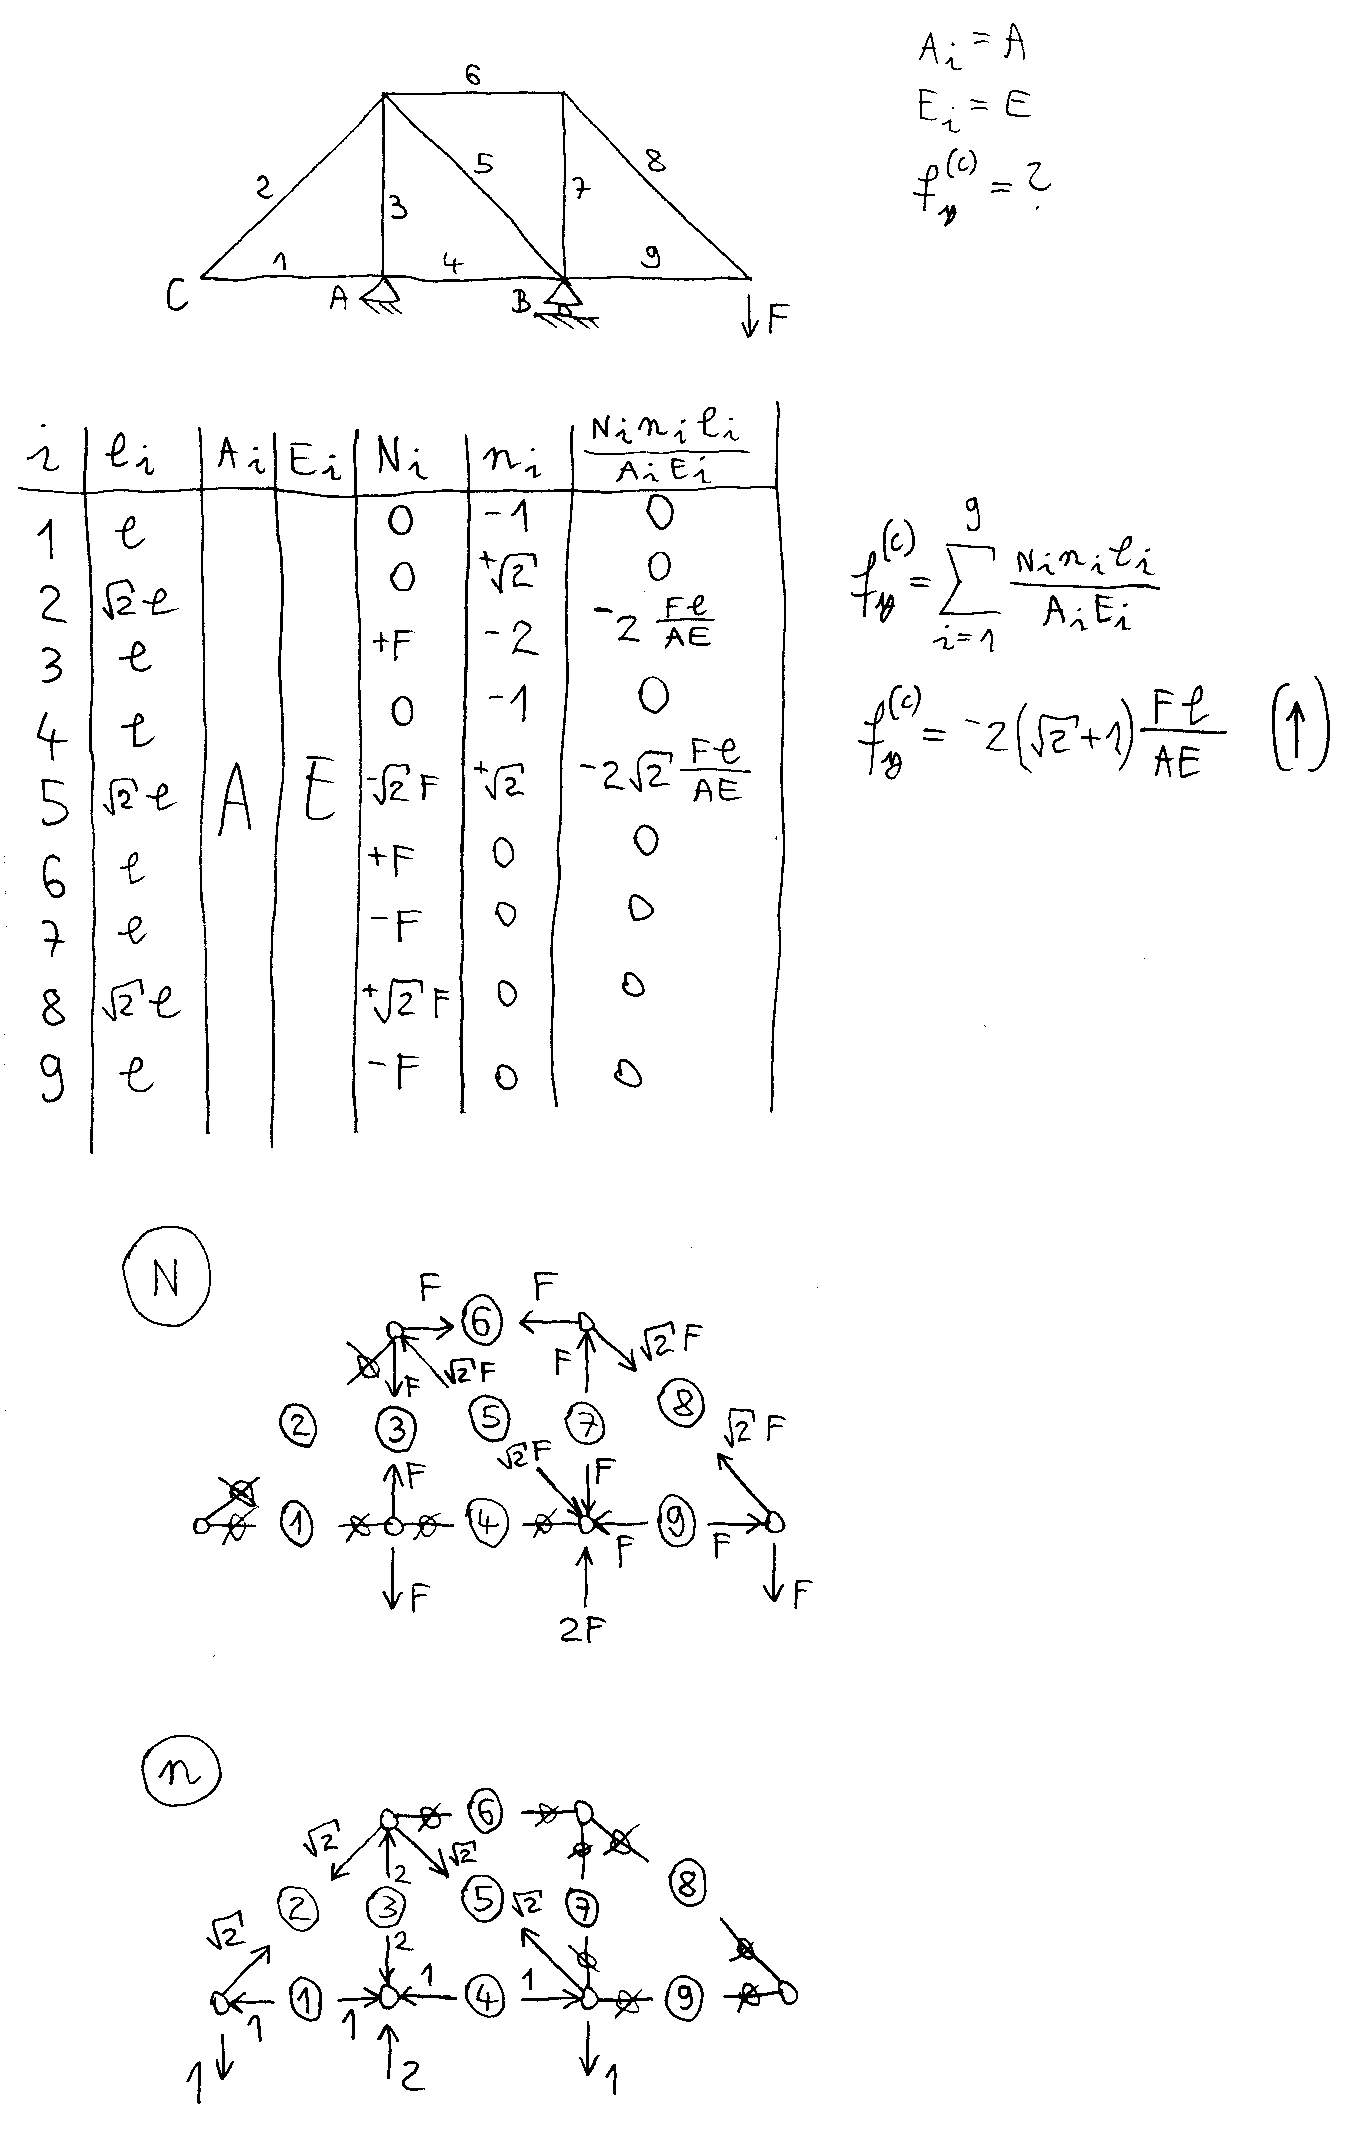 A_i = A
E_i = E
f_y^(c) = ?
6
2 3 5 7 8
C 1 A 4 B 9
F
i l_i A_i E_i N_i n_i N_i n_i l_i / A_i E_i
1 l 0 -1 0
2 √2 l 0 +√2 0
3 l +F -2 -2 Fl/AE
4 l 0 -1 0
5 √2 l A E -√2 F +√2 -2√2 Fl/AE
6 l +F 0 0
7 l -F 0 0
8 √2 l +√2 F 0 0
9 l -F 0 0
f_y^(c) = ∑_{i=1}^{9} N_i n_i l_i / A_i E_i
f_y^(c) = -2(√2+1) Fl/AE (↑)
N
F 6 F
F √2 F F √2 F
2 3 5 7 8
F √2 F F √2 F
1 4 F 9 F
F 2F F
n
6
√2 2 √2
2 3 5 7 8
√2 2 √2
1 1 1 1 4 1 9
1 2 1